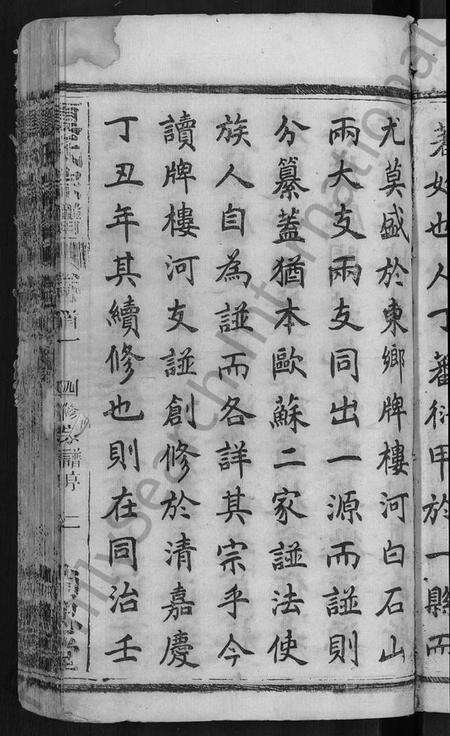 著如也人丁蕃衍甲於一縣而
尤莫盛於東鄉牌樓河白石山
兩大支兩支同出一源而諩則
分纂蓋猶本歐蘇二家諩法使
族人自為諩而各詳其宗乎今
讀牌樓河支諩創修於清嘉慶
丁丑年其續修也則在同治壬
卷首一 四修宗譜序 二
mysearch International